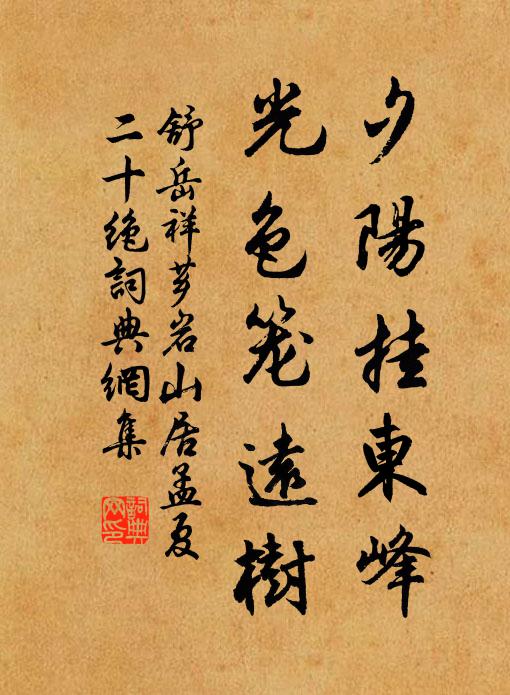 夕陽挂東峰
光色笼遠樹
舒岳祥芗岩山居孟夏
二十绝詞典網集
詞典网印